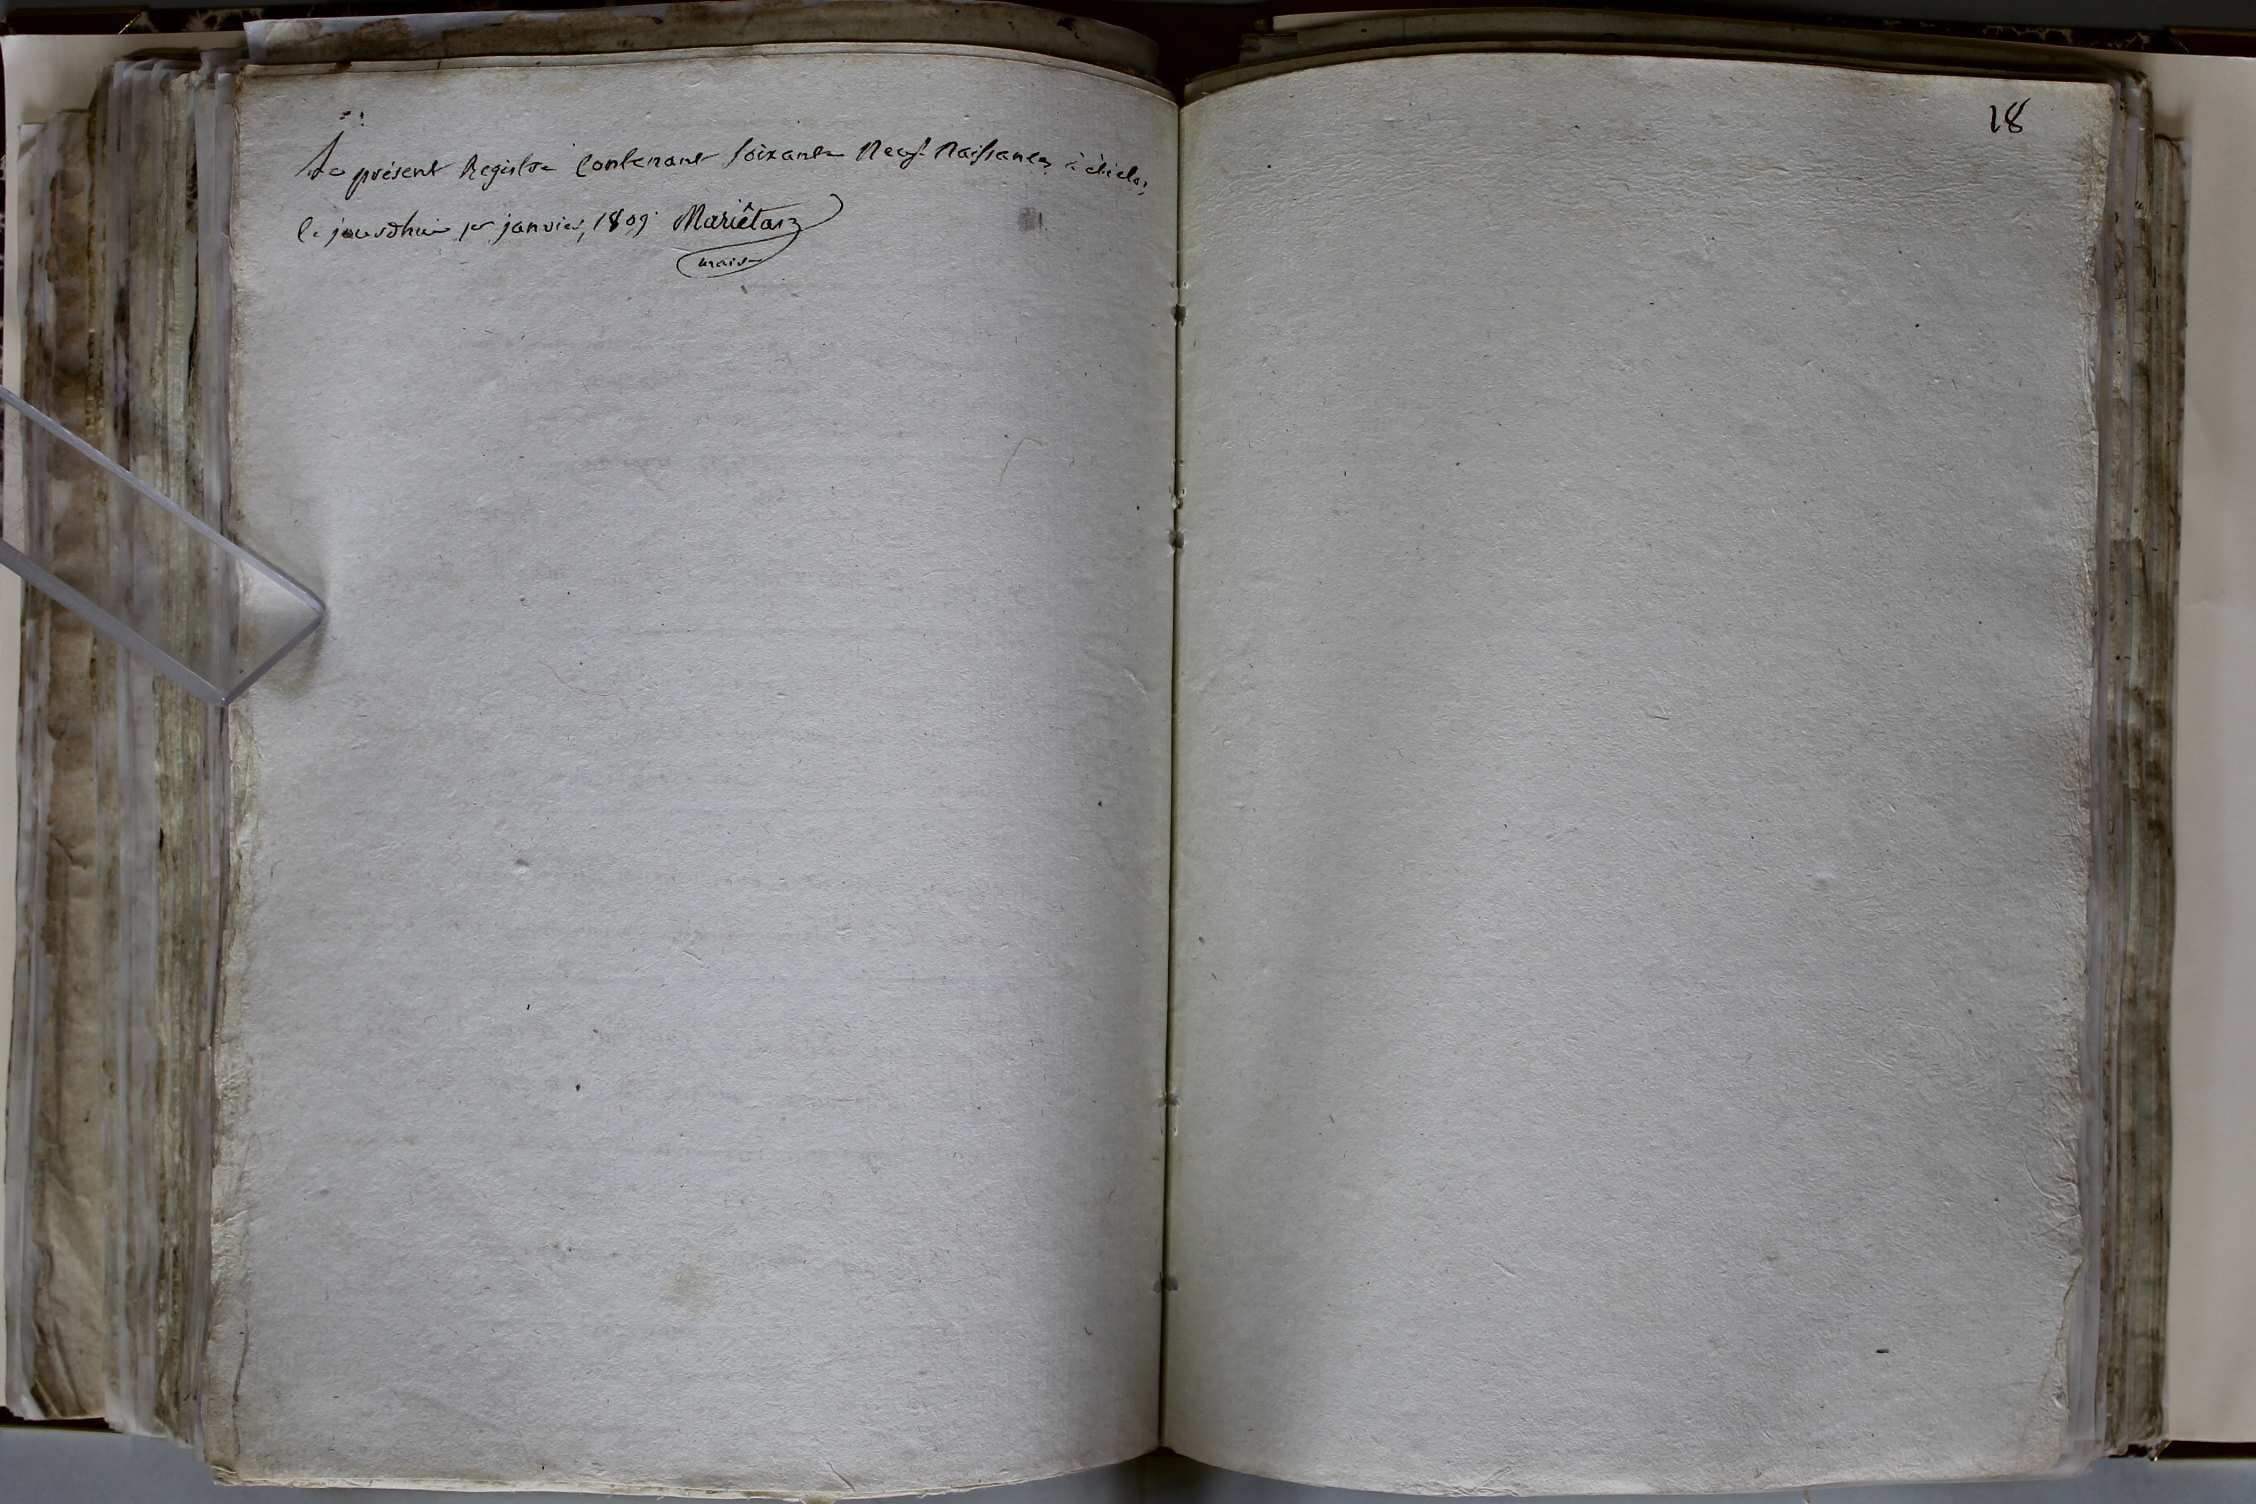 Le présent Registre contenant soixante Neuf Naissances a été clos,
le jourdhui 1er janvier, 1809. Mariétaz
maire
18